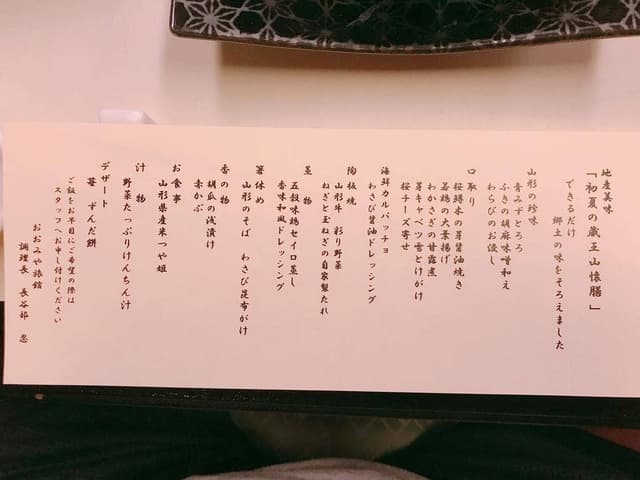 地産美味
「初夏の蔵王山懐膳」
できるだけ
郷土の味をそろえました
山形の珍味
青みずとろろ
ふきの胡麻味噌和え
わらびのお浸し
口取り
桜鱒木の芽醤油焼き
若鶏の大葉揚げ
わかさぎの甘露煮
芽キャベツ雪とけがけ
桜チーズ寄せ
海鮮カルパッチョ
わさび醤油ドレッシング
陶板焼
山形牛 彩り野菜
ねぎと玉ねぎの自家製たれ
蒸 物
五穀味鶏セイロ蒸し
香味和風ドレッシング
箸休め
山形のそば わさび昆布がけ
香の物
胡瓜の浅漬け
赤かぶ
お食事
山形県産米つや姫
汁 物
野菜たっぷりけんちん汁
デザート
苺 ずんだ餅
ご飯をお早目にご希望の際は
スタッフへお申し付けください
おおみや旅館
調理長 長谷部 忍